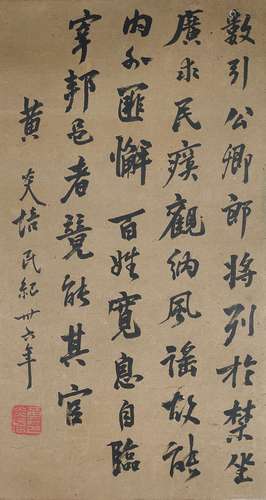 數引公卿郎將列於禁坐
廣求民瘼觀納風謠故能
内外匪懈百姓寬息自臨
宰邦邑者競能其官
黄炎培民紀卅六年